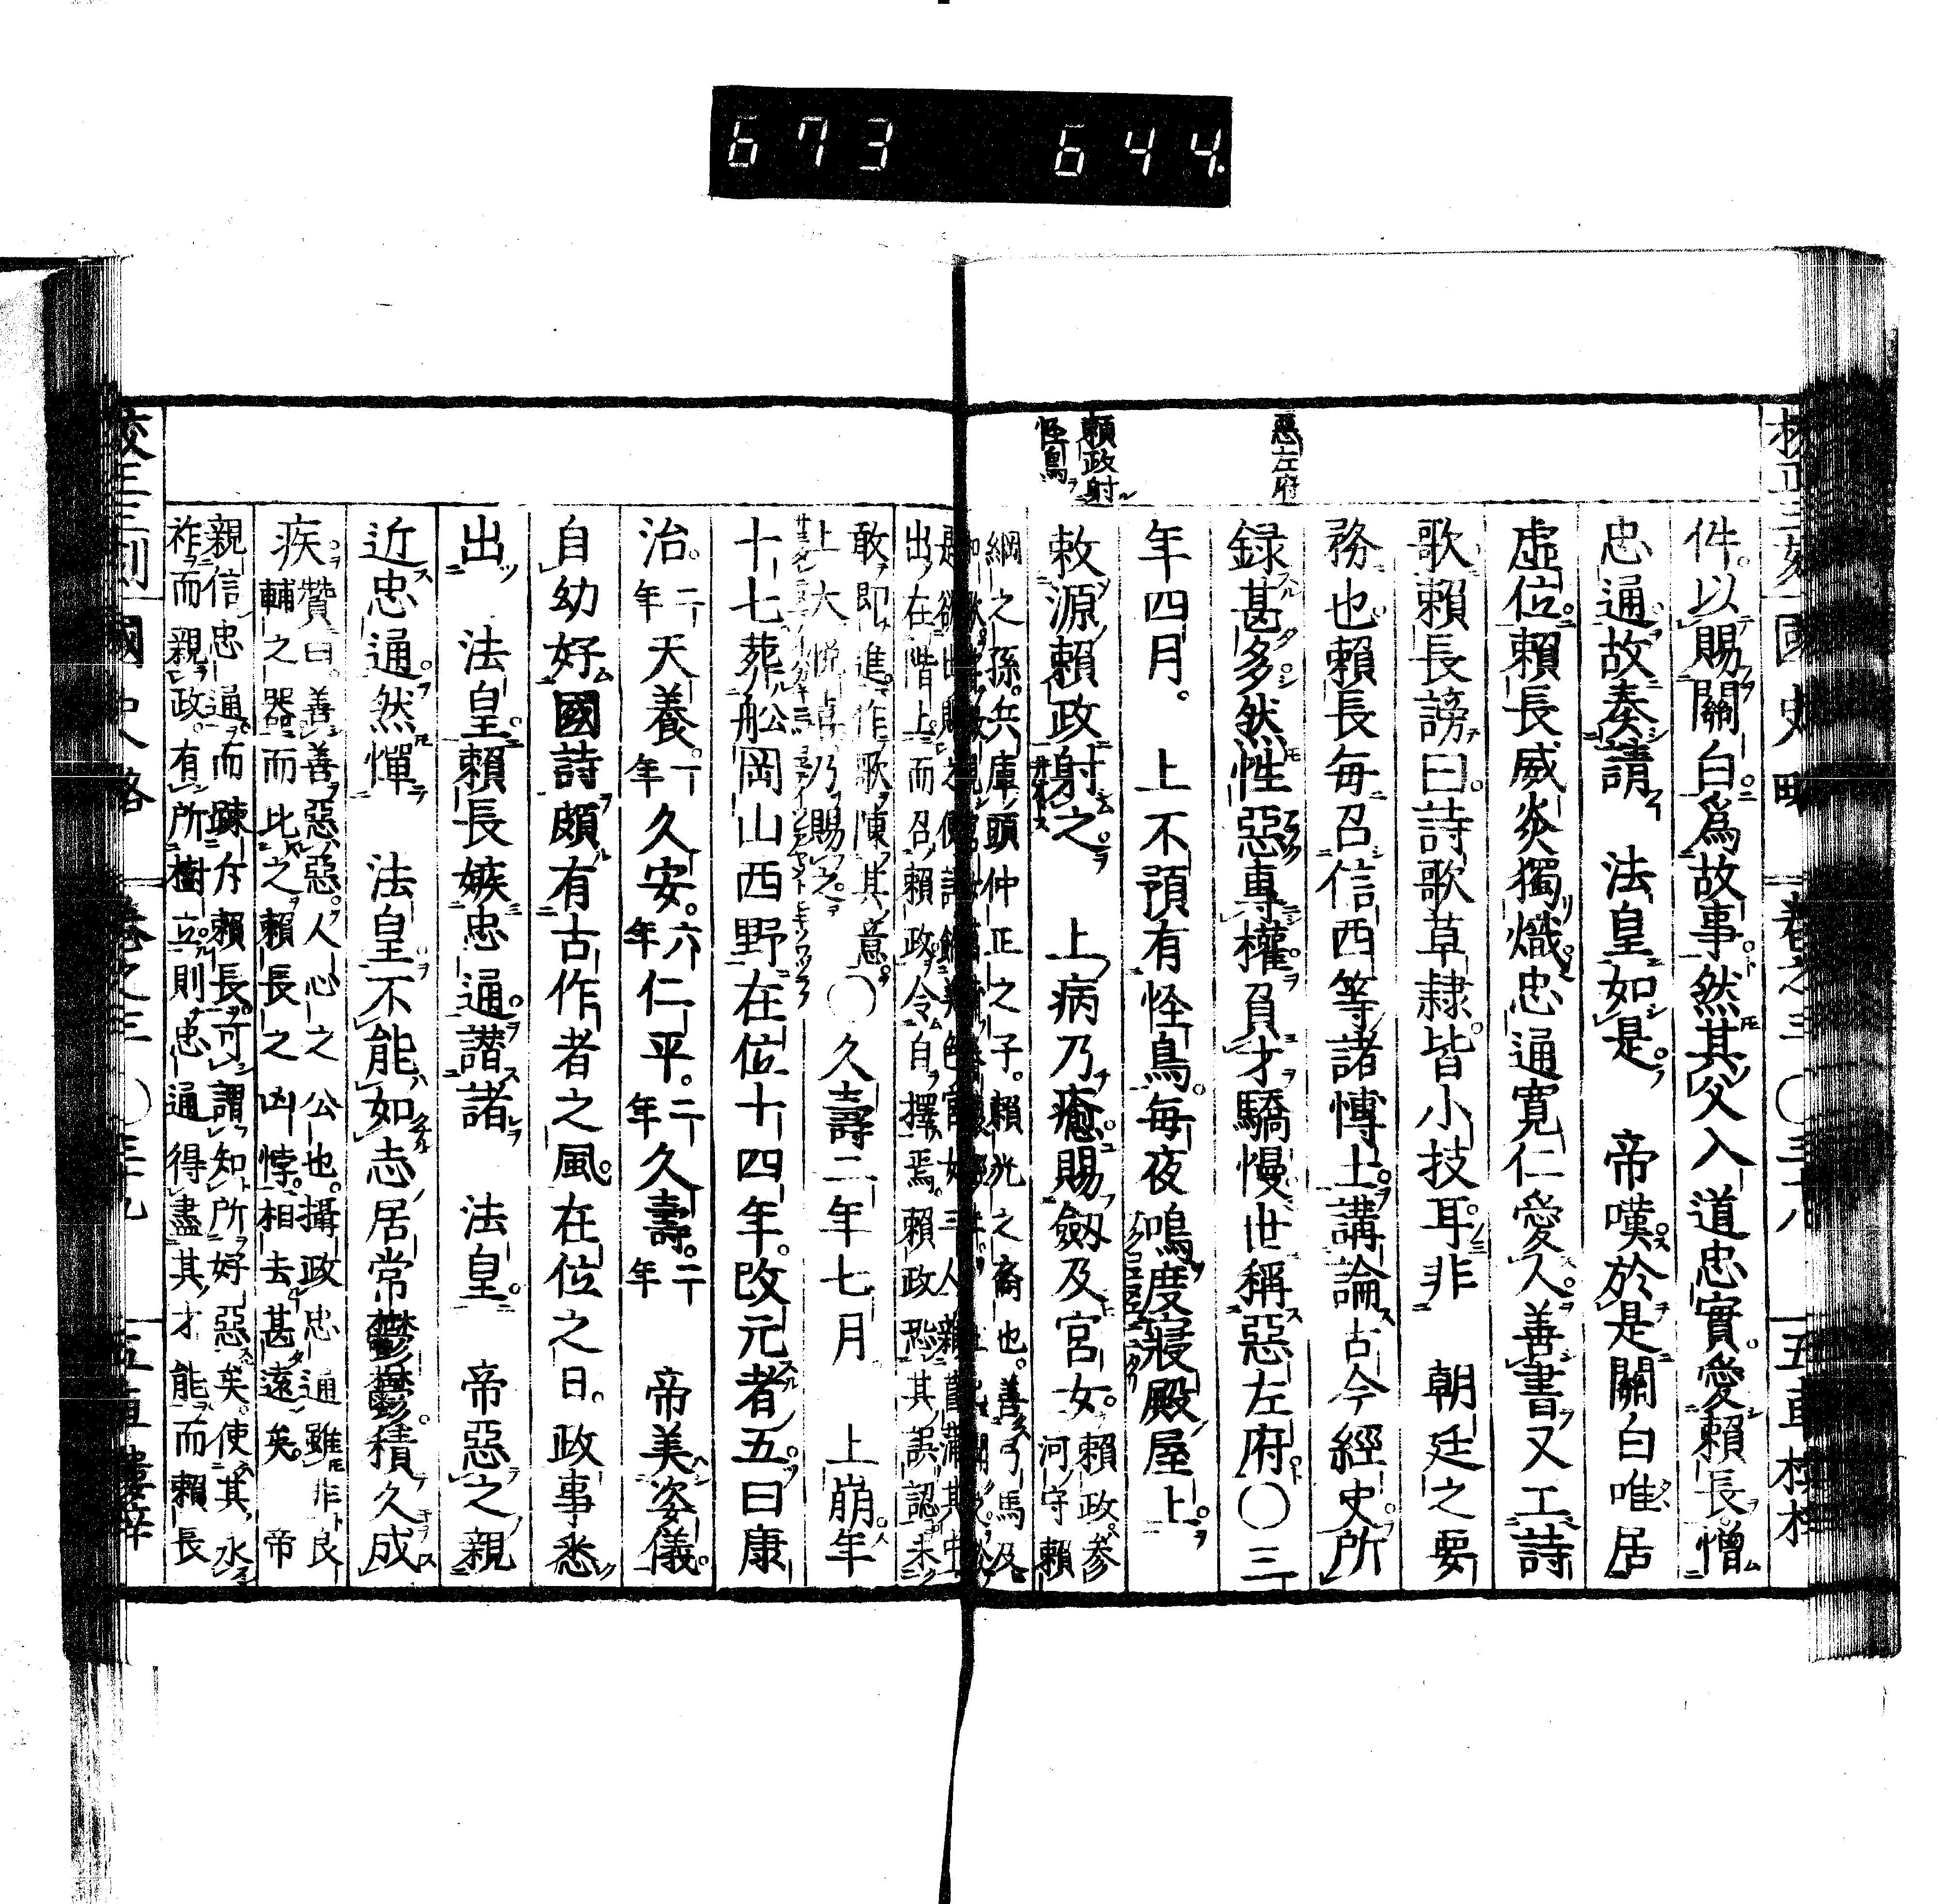 673 644.
國史略 卷之三 〇三十八 五車樓梓
惡左府
賴政射
怪鳥
件以賜關白爲故事然其父入道忠實愛賴長憎
忠通故奏請 法皇如是 帝嘆於是關白唯居
虛位賴長威炎獨熾忠通寬仁愛人善書又工詩
歌賴長謗曰詩歌草隷皆小技耳非 朝廷之要
務也賴長每召信西等諸博士講論古今經史所
録甚多然性惡專權負才驕慢世稱惡左府〇三
年四月 上不預有怪鳥每夜鳴度寢殿屋上
敕源賴政射之 上病乃癒賜劔及宮女 賴政參
河守賴
綱之孫兵庫頭仲正之子賴光之裔也善弓馬及
出在階上而召賴政令自擇焉賴政恐其誤認未
敢即進作歌陳其意
上大悦 乃賜之
〇久壽二年七月 上崩年
十七葬舩岡山西野在位十四年改元者五曰康
治二年天養一年久安六年仁平二年久壽二年 帝美姿儀
自幼好國詩頗有古作者之風在位之日政事悉
出 法皇賴長嫉忠通譖諸 法皇 帝惡之親
近忠通然憚 法皇不能如志居常鬱鬱積久成
疾
贊曰善善惡惡人心之公也攝政忠通雖非良
輔之器而比之賴長之凶悖相去甚遠矣 帝
親信忠通而疎斥賴長可謂知所好惡矣使其永
祚而親政有所樹立則忠通得盡其才能而賴長
國史略 卷之三 〇三十九 五車樓梓